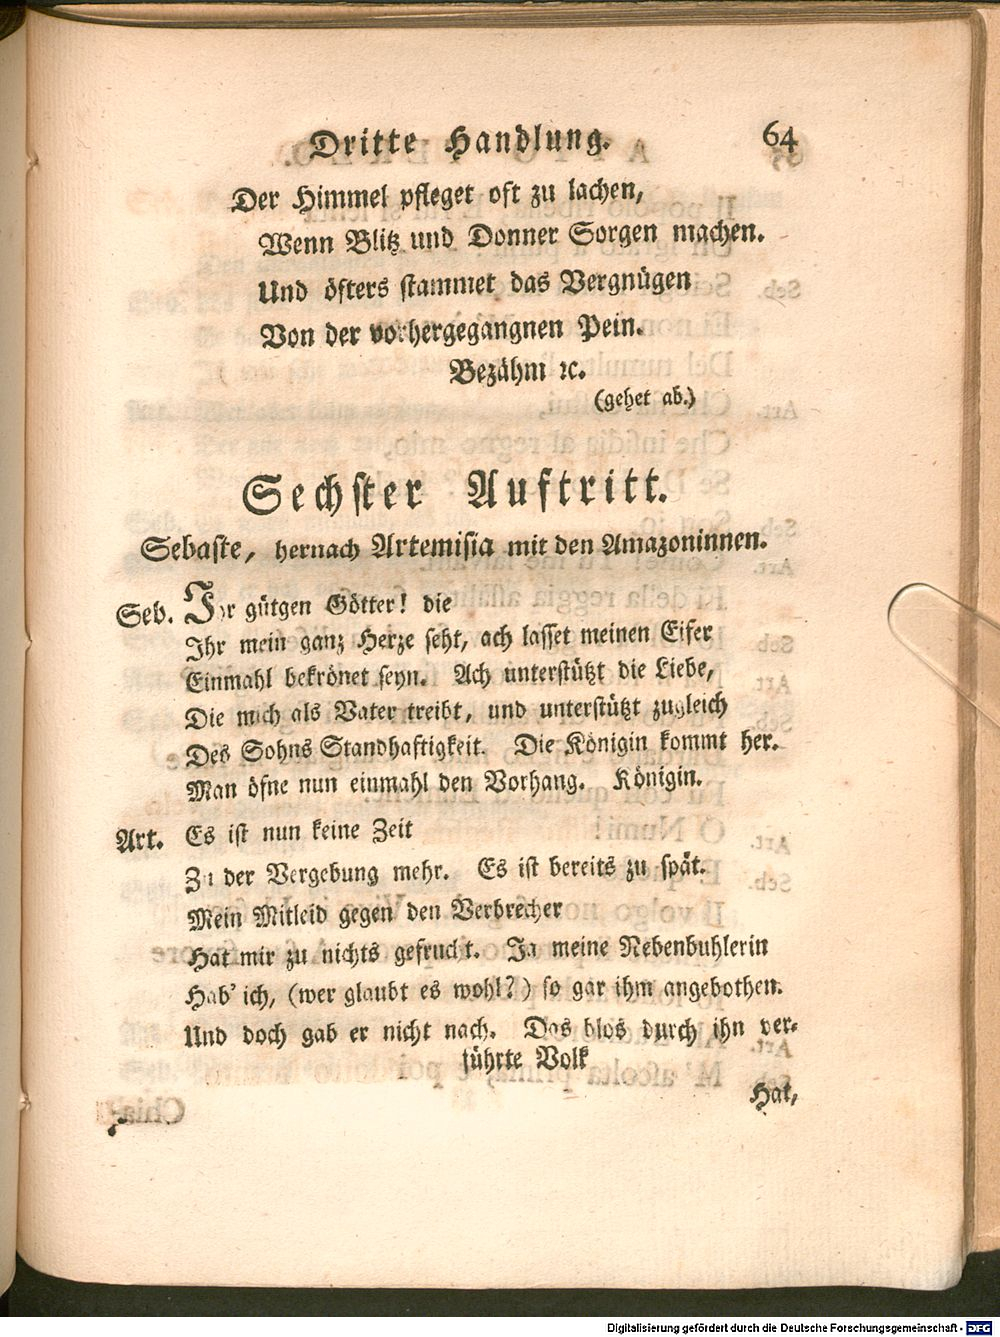 Dritte Handlung. 64
Der Himmel pfleget oft zu lachen,
Wenn Blitz und Donner Sorgen machen.
Und öfters stammet das Vergnügen
Von der vorhergegangnen Pein.
Bezähm ꝛc.
(gehet ab.)
Sechster Auftritt.
Sebaste, hernach Artemisia mit den Amazoninnen.
Seb. Ihr gütgen Götter! die
Ihr mein ganz Herze seht, ach lasset meinen Eifer
Einmahl bekrönet seyn. Ach unterstützt die Liebe,
Die mich als Vater treibt, und unterstützt zugleich
Des Sohns Standhaftigkeit. Die Königin kommt her.
Man öfne nun einmahl den Vorhang. Königin.
Art. Es ist nun keine Zeit
Zu der Vergebung mehr. Es ist bereits zu spät.
Mein Mitleid gegen den Verbrecher
Hat mir zu nichts gefrucht. Ja meine Nebenbuhlerin
Hab' ich, (wer glaubt es wohl?) so gar ihm angebothen.
Und doch gab er nicht nach. Das blos durch ihn ver-
führte Volk
Hat,
Digitalisierung gefördert durch die Deutsche Forschungsgemeinschaft - DFG